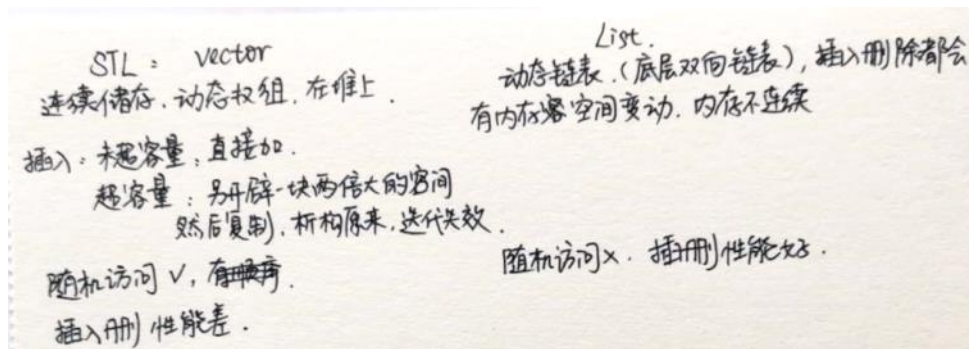 STL： vector
连续储存，动态权组，在堆上．
插入：未超容量，直接加．
超容量：另开辟一块两倍大的容间
然后复制，析构原来，迭代失效．
随机访问√，
插入删 性能差．
List．
动态链表．（底层双向链表），插入删除都会
有内存 空间变动．内存不连续
随机访问×．插删性能好．